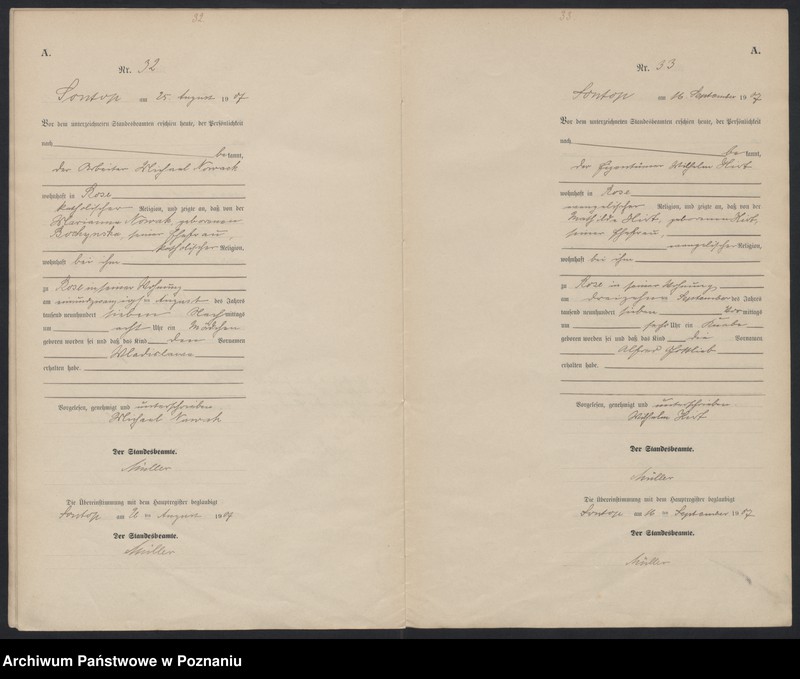 32
A.
Nr. 32
Sontop am 25 August 1907
Vor dem unterzeichneten Standesbeamten erschien heute, der Persönlichkeit
nach
bekannt,
der Arbeiter Michael Nowack
wohnhaft in Rose
katholischer Religion, und zeigte an, daß von der
Marianna Nowak, geborenen
seiner Ehefrau,
katholischer Religion,
wohnhaft bei ihm
zu Rose in seiner Wohnung
am einundzwanzigsten August des Jahres
tausend neunhundert sieben Nachmittags
um acht Uhr ein Mädchen
geboren worden sei und daß das Kind den Vornamen
Wladislawa
erhalten habe.
Vorgelesen, genehmigt und unterschrieben
Michael Nowak
Der Standesbeamte.
Müller
Die Übereinstimmung mit dem Hauptregister beglaubigt
Sontop am August 1907
Der Standesbeamte.
Müller
33
A.
Nr. 33
Sontop am 16 September 1907
Vor dem unterzeichneten Standesbeamten erschien heute, der Persönlichkeit
nach
bekannt,
der Eigentümer Wilhelm
wohnhaft in Rose
evangelischer Religion, und zeigte an, daß von der
Mathilde geborenen
seiner Ehefrau,
evangelischer Religion,
wohnhaft bei ihm
zu Rose in seiner Wohnung
am dreizehnten September des Jahres
tausend neunhundert sieben Vormittags
um sechs Uhr ein Knabe
geboren worden sei und daß das Kind die Vornamen
Alfred Gottlieb
erhalten habe.
Vorgelesen, genehmigt und unterschrieben
Wilhelm
Der Standesbeamte.
Müller
Die Übereinstimmung mit dem Hauptregister beglaubigt
Sontop am 16 September 1907
Der Standesbeamte.
Müller
Archiwum Państwowe w Poznaniu